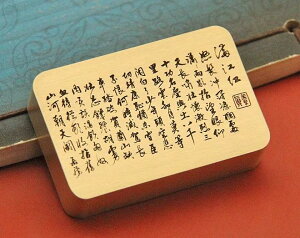 滿江紅
怒髮沖冠憑闌處
瀟瀟雨歇抬望眼仰
天長嘯壯懷激烈三
十功名塵與土八千
里路雲和月莫等
閒白了少年頭空悲
切靖康恥猶未雪臣
子恨何時滅駕長
車踏破賀蘭山缺
壯志飢餐胡虜
肉笑談渴飲匈奴
血待從頭收拾舊
山河朝天闕